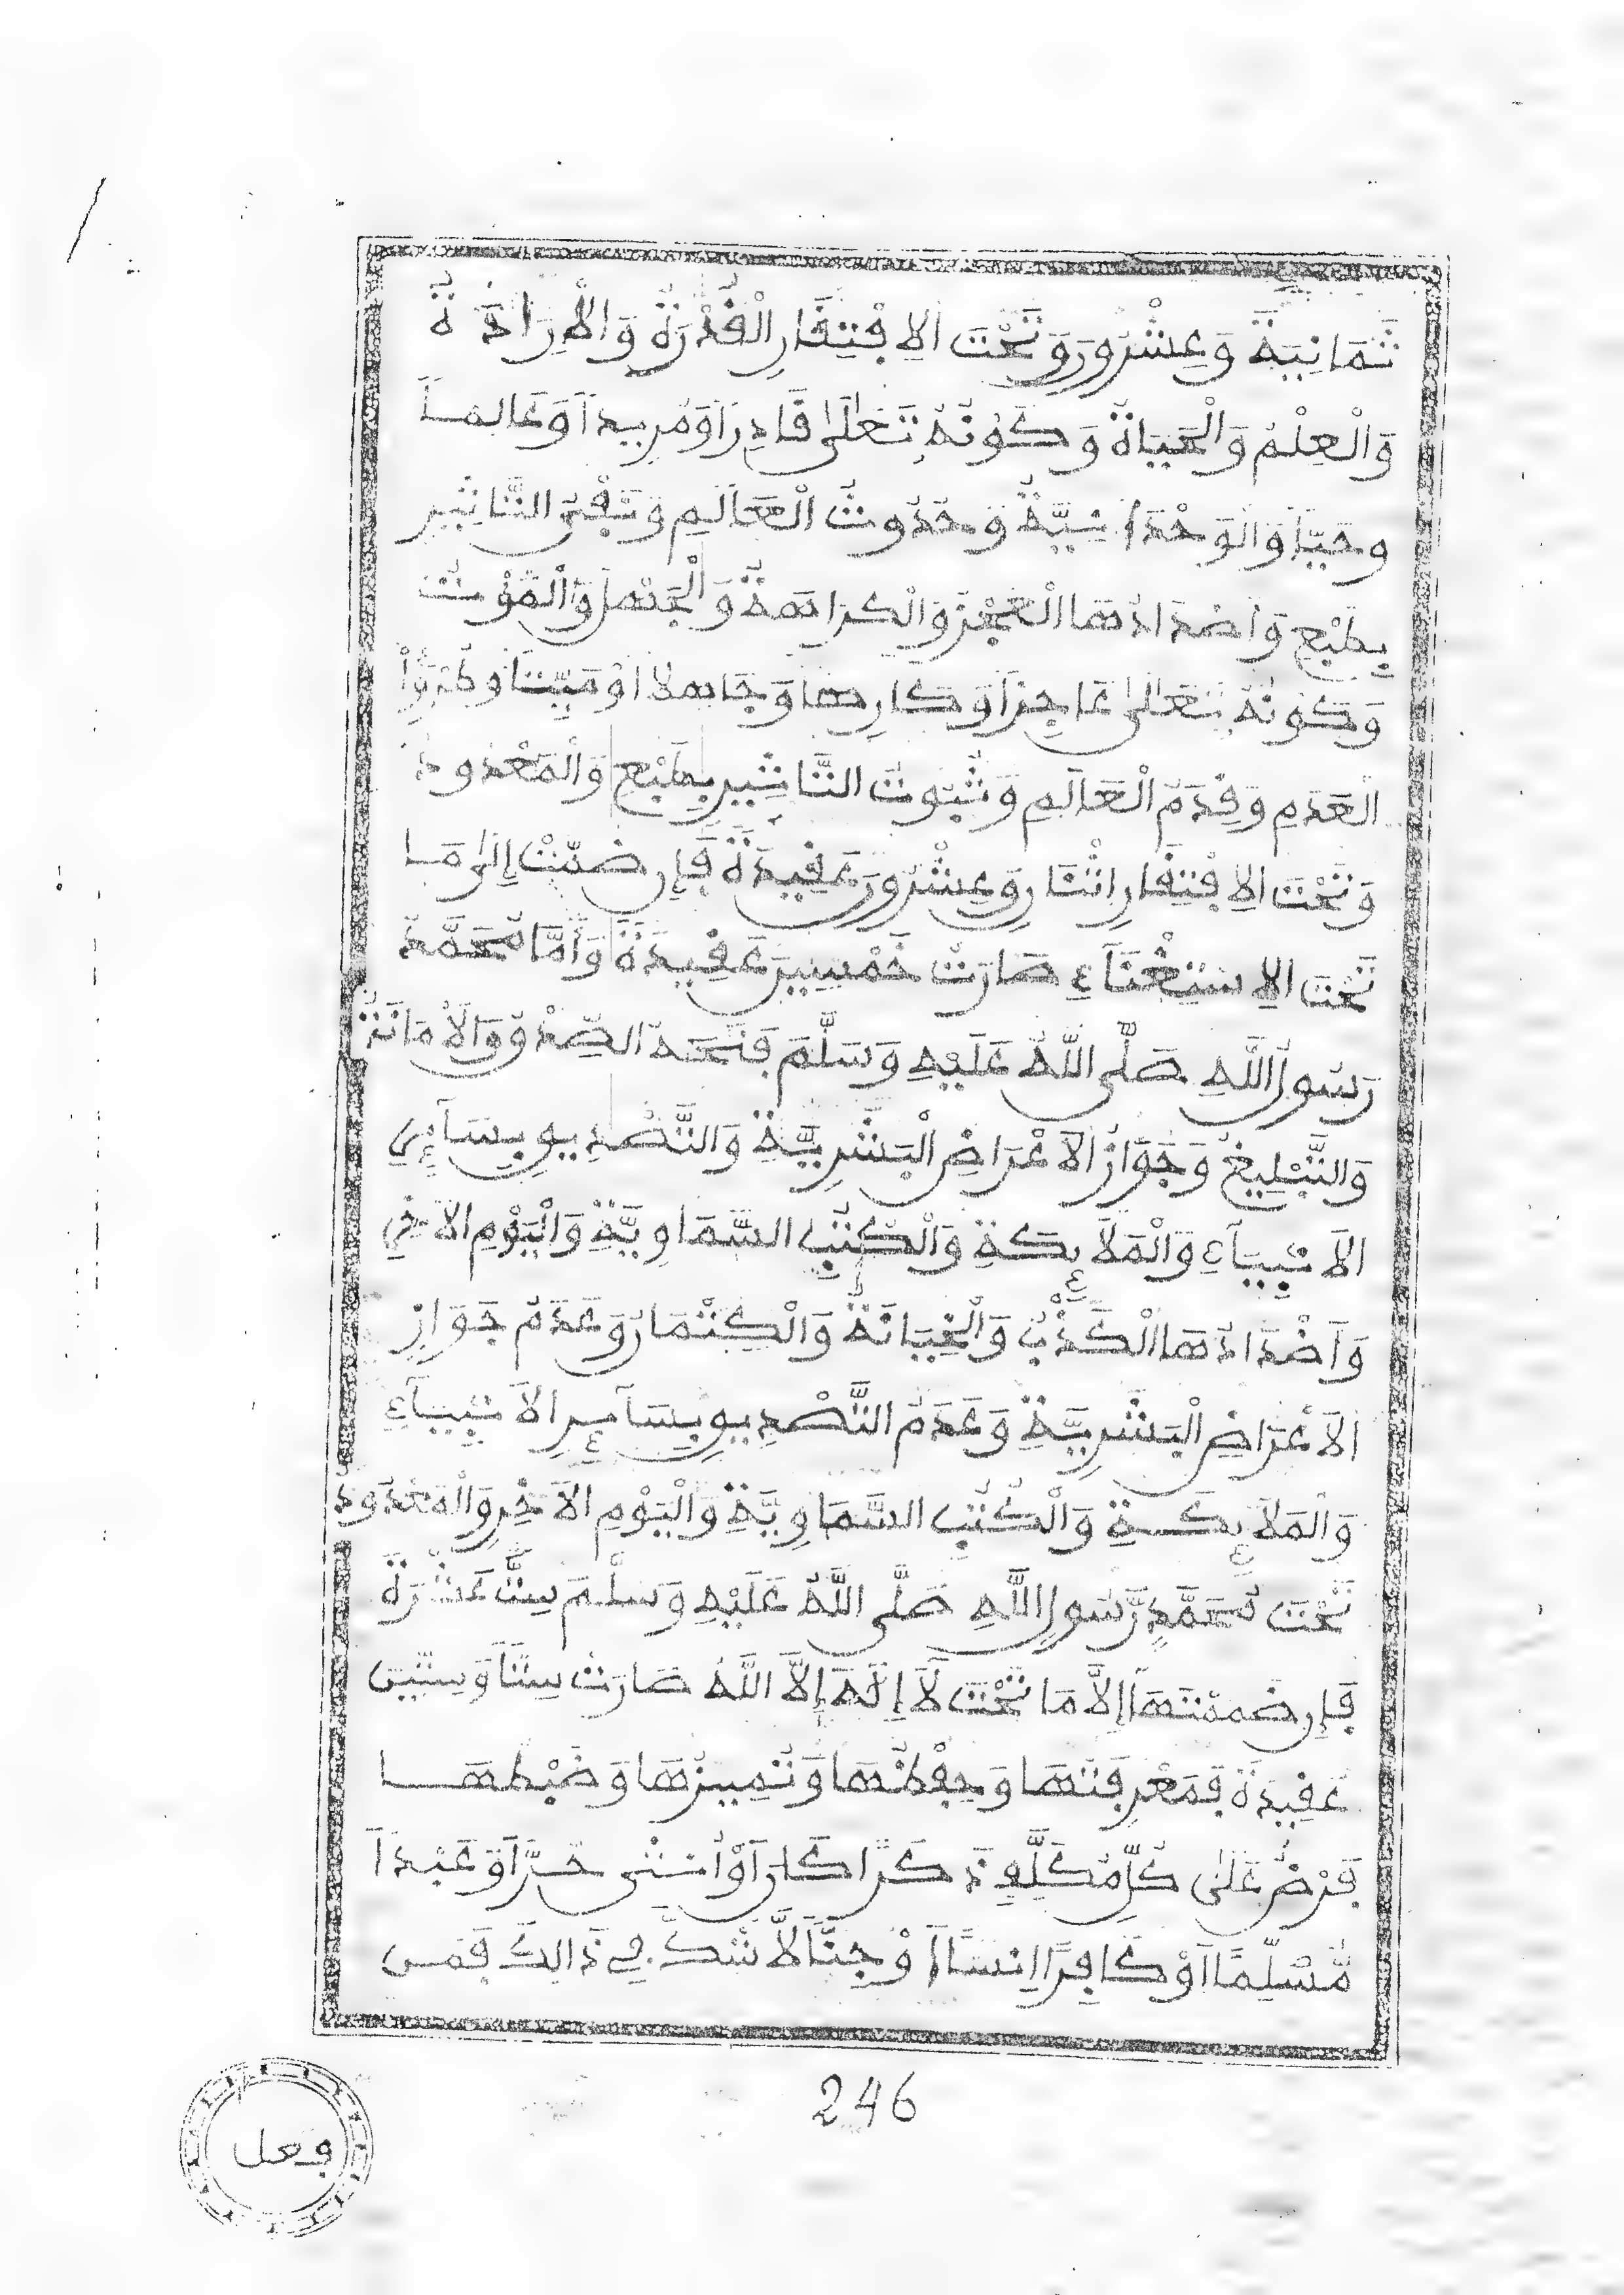 ثَمَانِيَةٌ وَعِشْرُونَ وَتَحْتَ الِافْتِقَارِ الْقُدْرَةُ وَالْإِرَادَةُ
وَالْعِلْمُ وَالْحَيَاةُ وَكَوْنُهُ تَعَلَىٰ قَادِرًا وَمُرِيدًا وَعَالِمًا
وَحَيًّا وَالْوَحْدَانِيَّةُ وَحُدُوثُ الْعَالَمِ وَنَفْيُ التَّاثِيرِ
بِطَبْعٍ وَأَضْدَادُهَا الْعَجْزُ وَالْكَرَاهَةُ وَالْجَهْلُ وَالْمَوْتُ
وَكَوْنُهُ تَعَلَىٰ عَاجِزًا وَكَارِهًا وَجَاهِلًا أَوْ مَيِّتًا وَطُرُوُّا
الْعَدَمِ وَقِدَمُ الْعَالَمِ وَثُبُوتُ التَّاثِيرِ بِطَبْعٍ وَالْمَعْدُودُ
وَتَحْتَ الِافْتِقَارِ اثْنَانِ وَعِشْرُونَ عَقِيدَةً فَإِن ضُمَّتْ إِلَىٰ مَا
تَحْتَ الِاسْتِغْنَآءِ صَارَتْ خَمْسِينَ عَقِيدَةً وَأَمَّا مُحَمَّدٌ
رَسُولُ اللَّهِ صَلَّى اللَّهُ عَلَيْهِ وَسَلَّمَ فَتَحْتَهُ الصِّدْقُ وَالْأَمَانَتُ
وَالتَّبْلِيغُ وَجَوَازُ الْأَعْرَاضِ الْبَشَرِيَّةِ وَالتَّصْدِيقُ بِسَآئِرِ
الْأَنْبِيَآءِ وَالْمَلَائِكَةِ وَالْكُتُبِ السَّمَاوِيَّةِ وَالْيَوْمِ الْآخِرِ
وَأَضْدَادُهَا الْكَذْبُ وَالْخِيَانَةُ وَالْكِتْمَانُ وَعَدَمُ جَوَازِ
الْأَعْرَاضِ الْبَشَرِيَّةِ وَعَدَمُ التَّصْدِيقِ بِسَآئِرِ الْأَنْبِيَآءِ
وَالْمَلَائِكَةِ وَالْكُتُبِ السَّمَاوِيَّةِ وَالْيَوْمِ الْآخِرِ وَالْمَعْدُودُ
تَحْتَ مُحَمَّدٍ رَّسُولِ اللَّهِ صَلَّى اللَّهُ عَلَيْهِ وَسَلَّمَ سِتَّ عَشْرَةَ
فَإِن ضَمَمْتَهَا إِلَّا مَا تَحْتَ لَا إِلَهَ إِلَّا اللَّهُ صَارَتْ سِتًّا وَسِتِّينَ
عَقِيدَةً فَمَعْرِفَتُهَا وَحِفْظُهَا وَتَمْيِيزُهَا وَضَبْطُهَا
فَرْضٌ عَلَىٰ كُلِّ مُكَلَّفٍ ذَكَرًا كَانَ أَوْ أُنْثَى حُرًّا أَوْ عَبْدًا
مُّسْلِمًا أَوْ كَافِرًا إِنسًا أَوْ جِنًّا لَّا شَكَّ فِي ذَالِكَ فَمَن
246
فعل